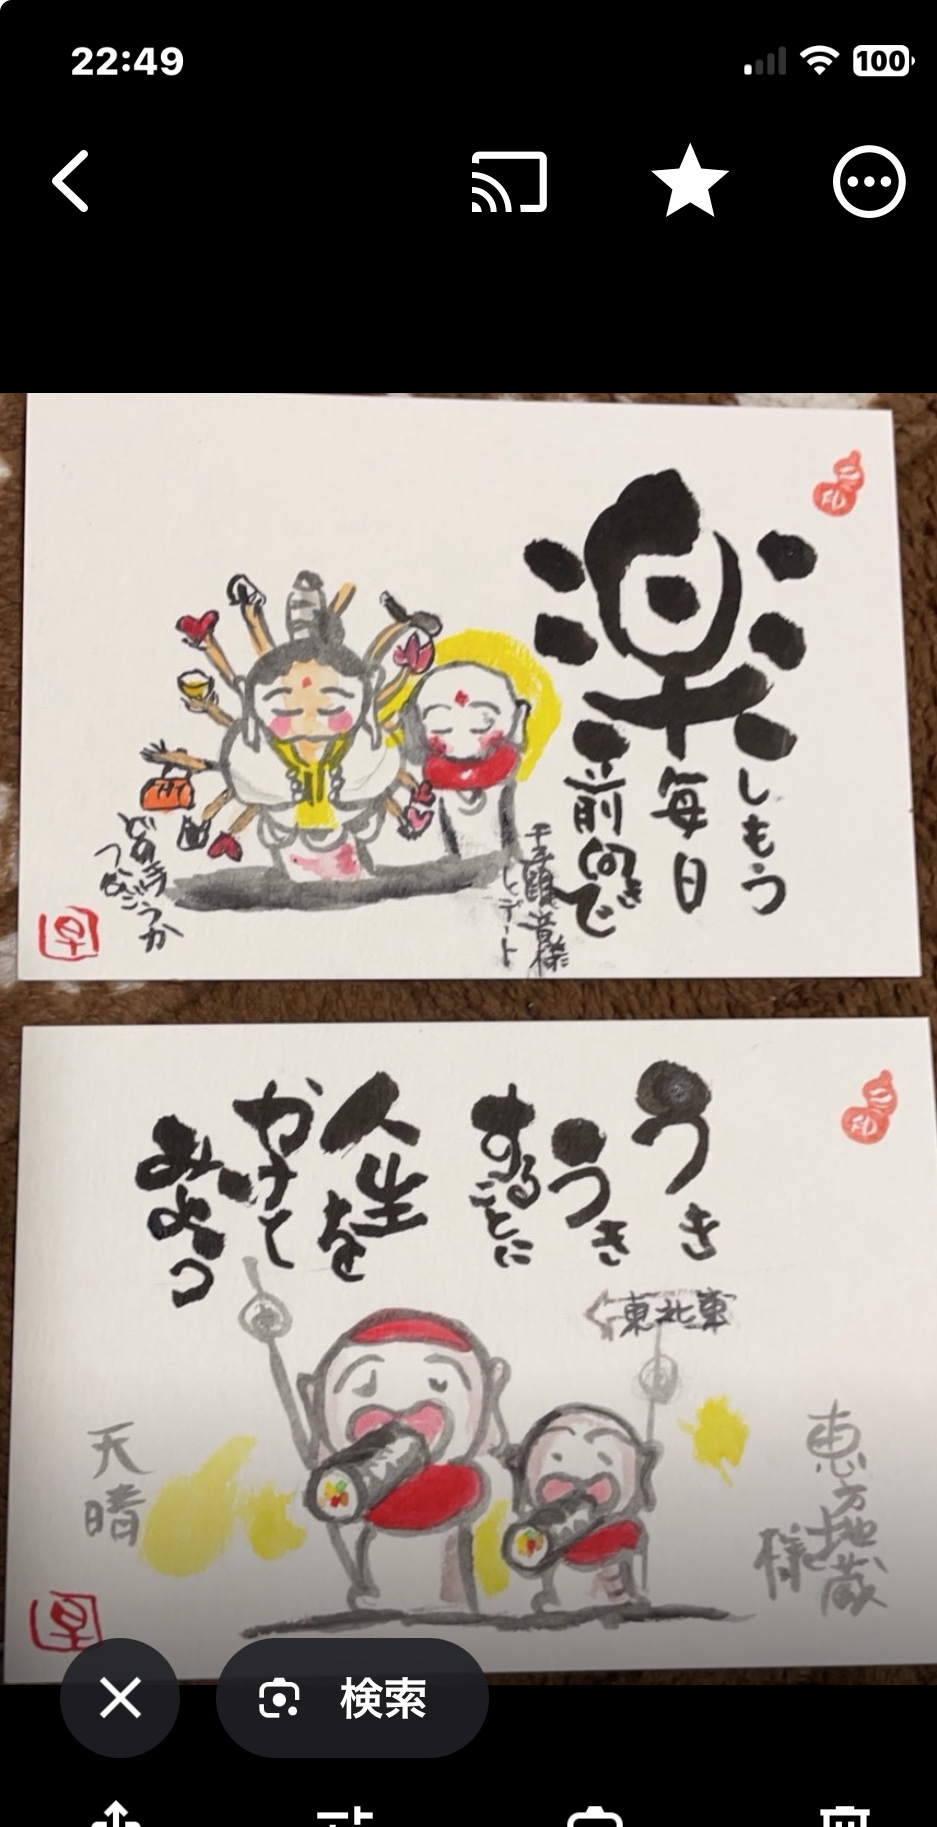 22:49
100
楽しもう
毎日
前向きで
千手観音様
とデート
どの手
つなごうか
早
うき
うき
することに
人生を
かけて
みよう
東北東
恵方地蔵
様
天晴
早
検索